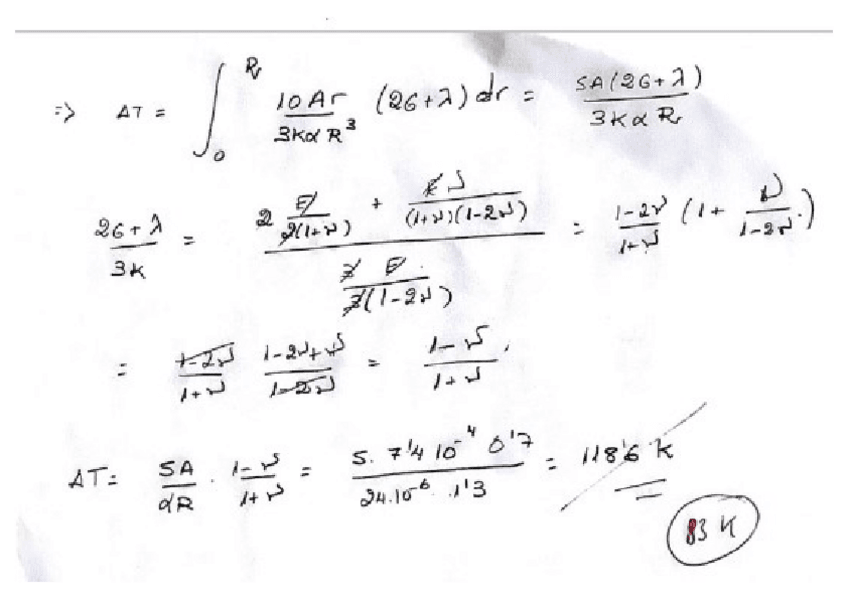 => ΔT = ∫₀ᴿ 10Ar / 3KαR³ (2G+λ) dr = 5A(2G+λ) / 3KαR
2G+λ / 3K = (2 E / 2(1+ν) + Eν / (1+ν)(1-2ν)) / (3 E / 3(1-2ν)) = 1-2ν / 1+ν (1 + ν / 1-2ν)
= 1-2ν / 1+ν 1-2ν+ν / 1-2ν = 1-ν / 1+ν
ΔT = 5A / αR · 1-ν / 1+ν = 5. 7'4 10⁻⁴ 0'7 / 24.10⁻⁶ .1'3 = 118'6 K
83 K